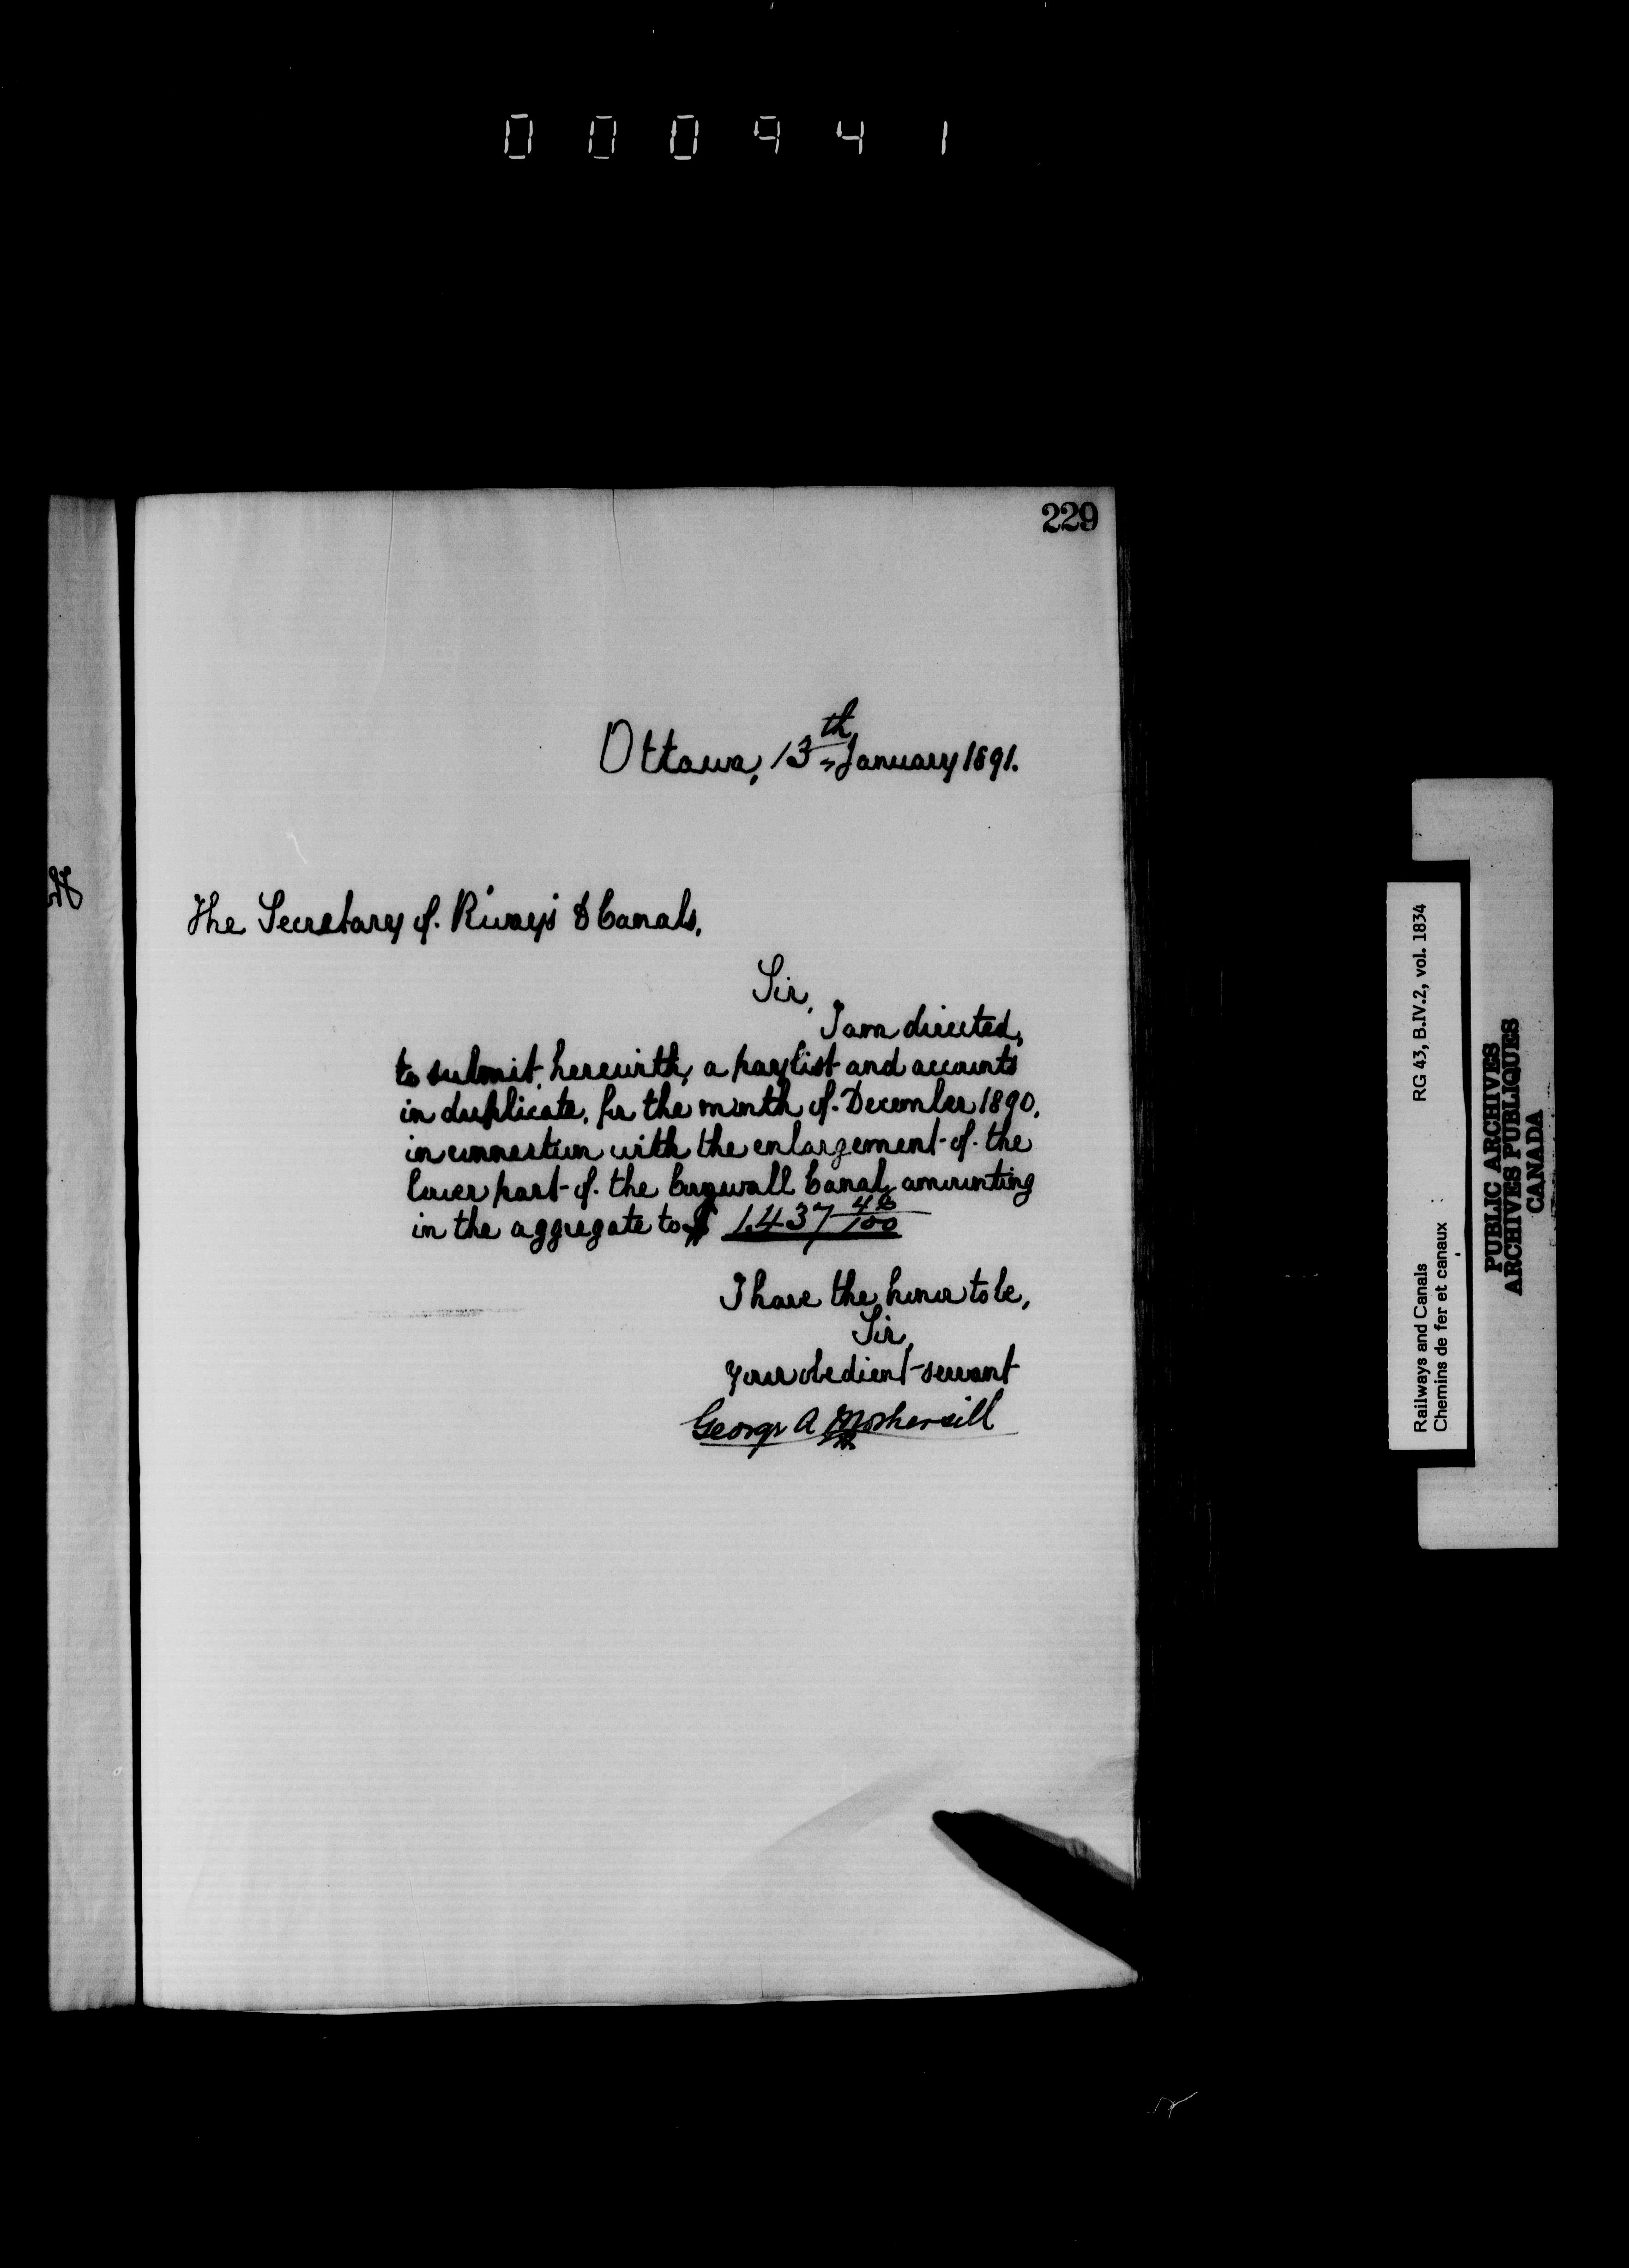 000941
229
Ottawa, 13th January 1891.
The Secretary of. Rways & Canals,
Sir,
I am directed,
to submit, herewith, a paylist and accounts
in duplicate, for the month of. December 1890,
in connection with the enlargement of. the
lower part of. the Cornwall Canal, amounting
in the aggregate to $ 1,437 48/100
I have the honor to be,
Sir,
Your obedient servant
George A Mothersill
Railways and Canals RG 43, B.IV.2, vol. 1834
Chemins de fer et canaux
PUBLIC ARCHIVES
ARCHIVES PUBLIQUES
CANADA